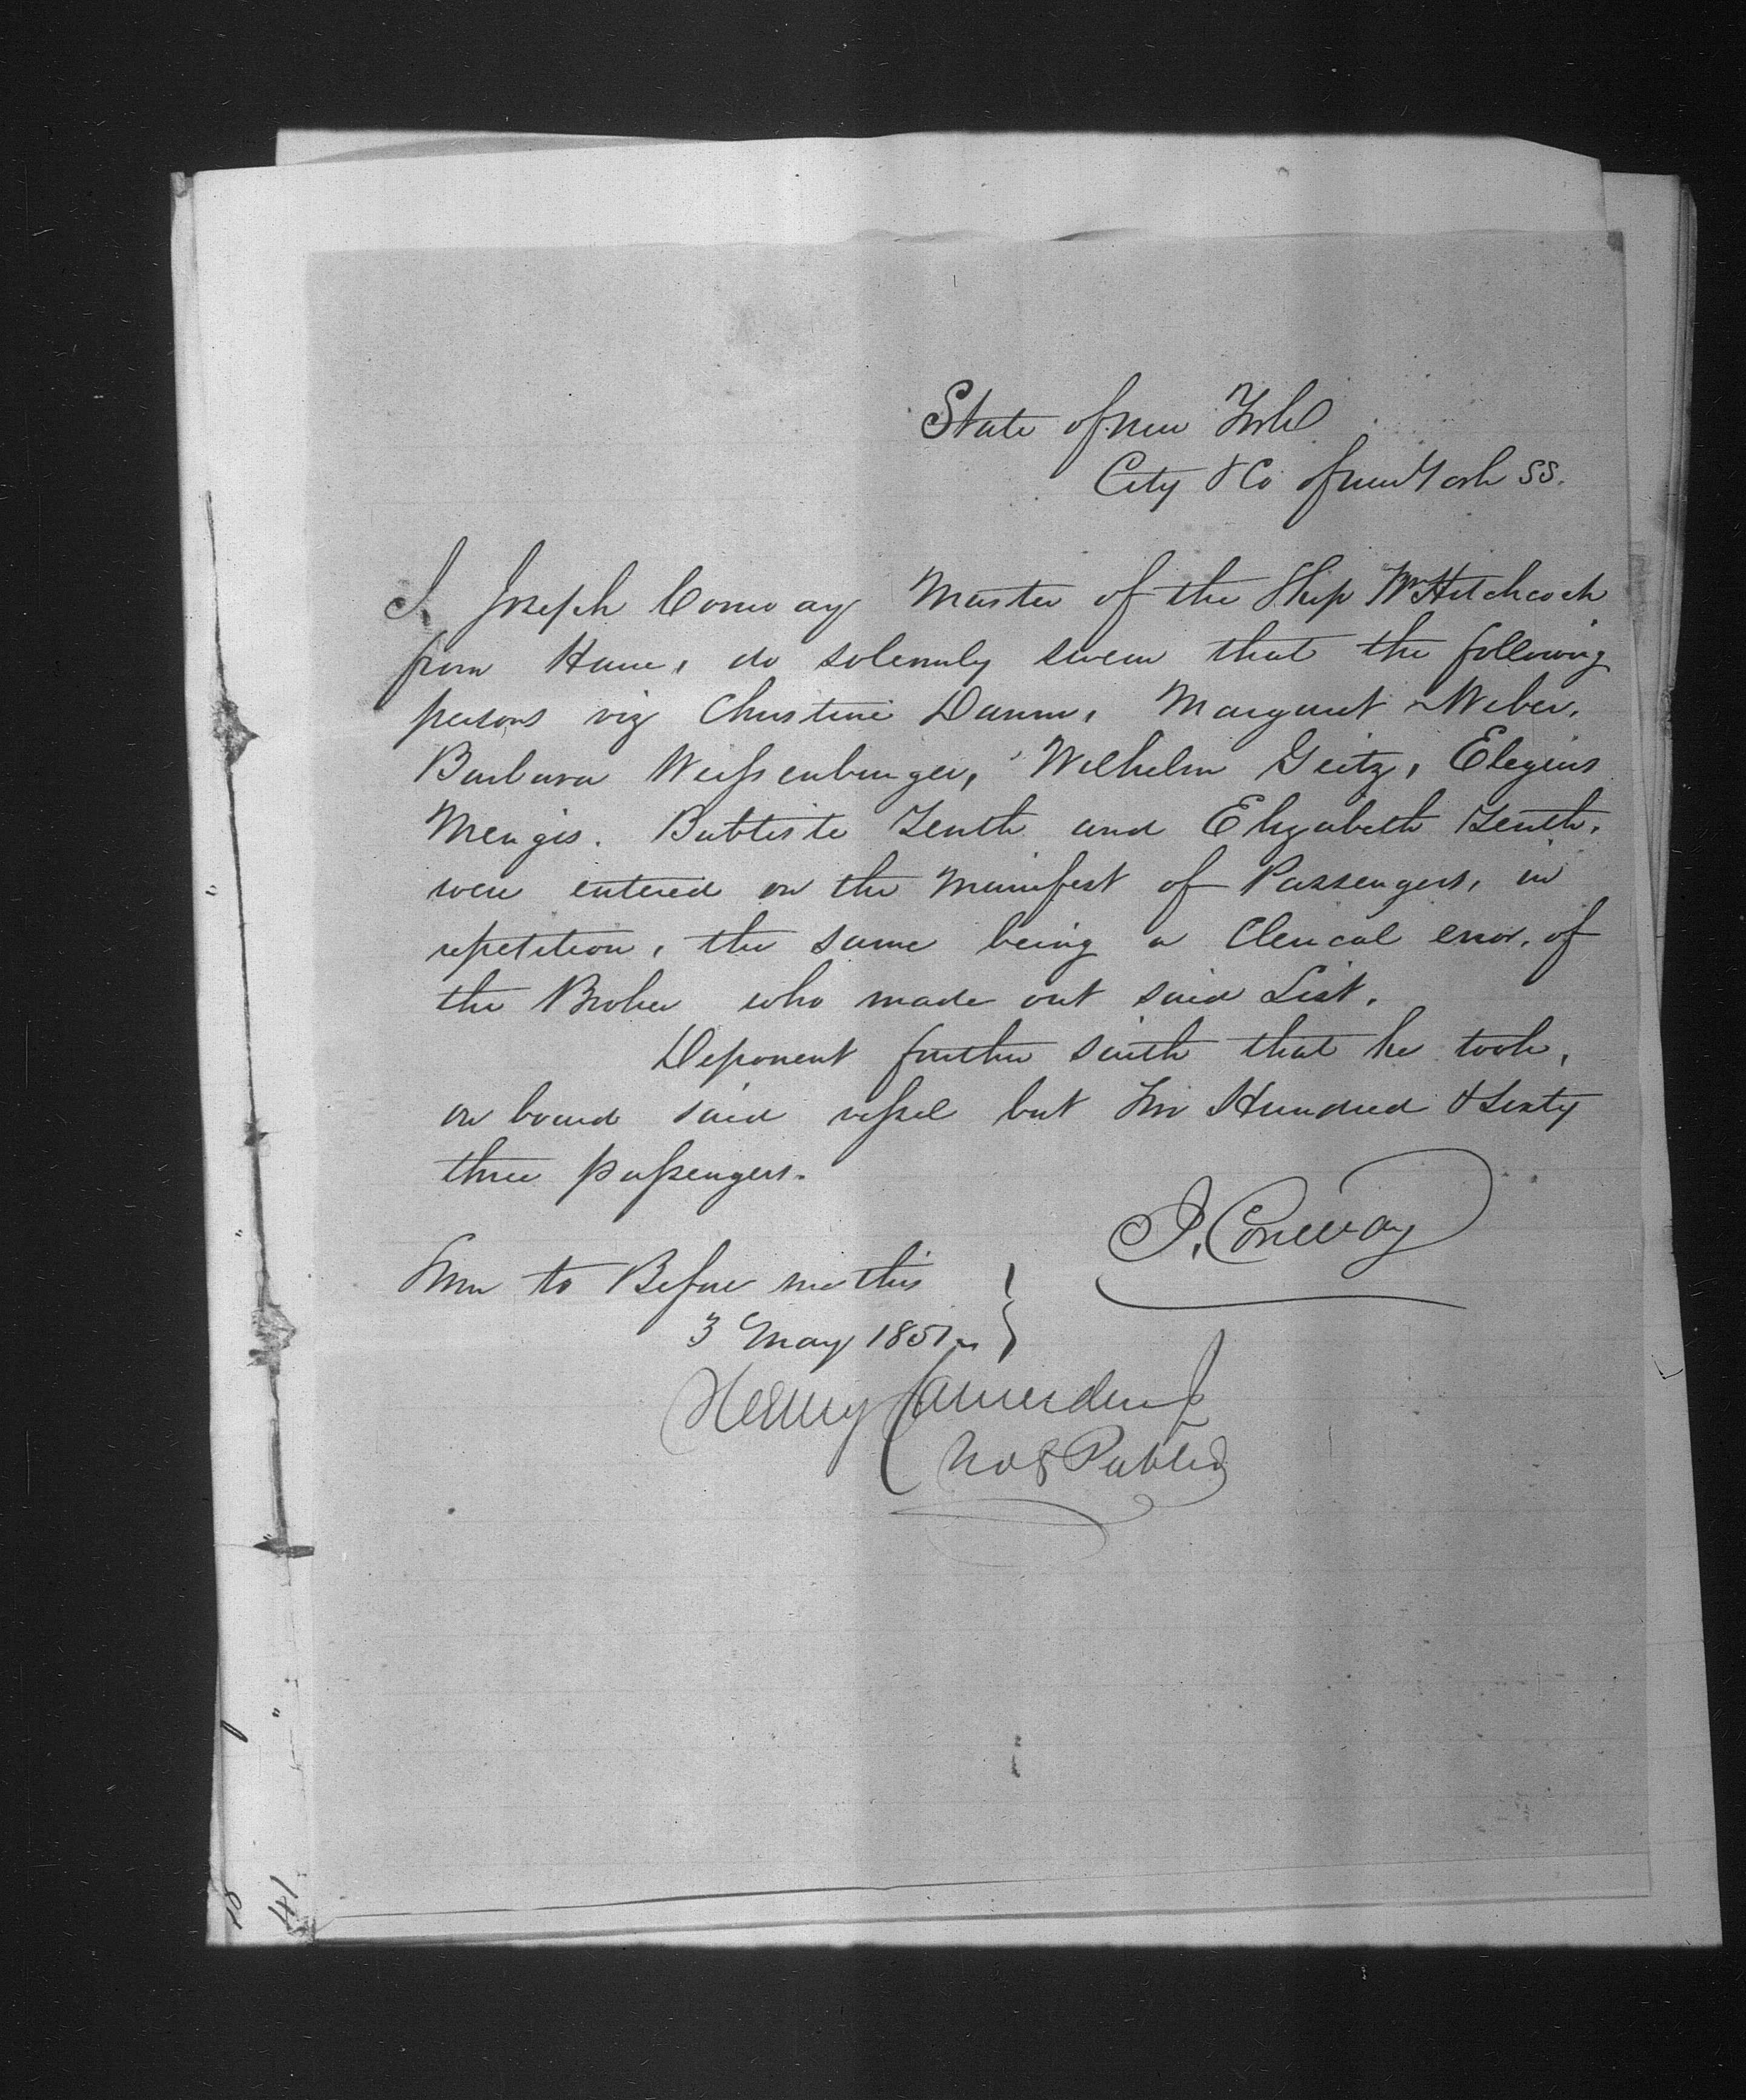 State of New York
City & Co of New York SS.
I Joseph Conway Master of the Ship Wm Hitchcock
from Havre, do solemnly swear that the following
persons viz Christine Damm, Margaret Weber,
Barbara Weissenburger, Wilhelm Geitz, Elegius
Mengis. Babtiste Zenth and Elizabeth Zenth,
were entered on the Manifest of Passengers, in
repetition, the same being a Clerical error, of
the Broker who made out said List.
Deponent further saith that he took,
on board said vessel but Two Hundred & Sixty
three passengers.
J. Conway
Sworn to Before me this
3 May 1851
Henry
Not Public
41